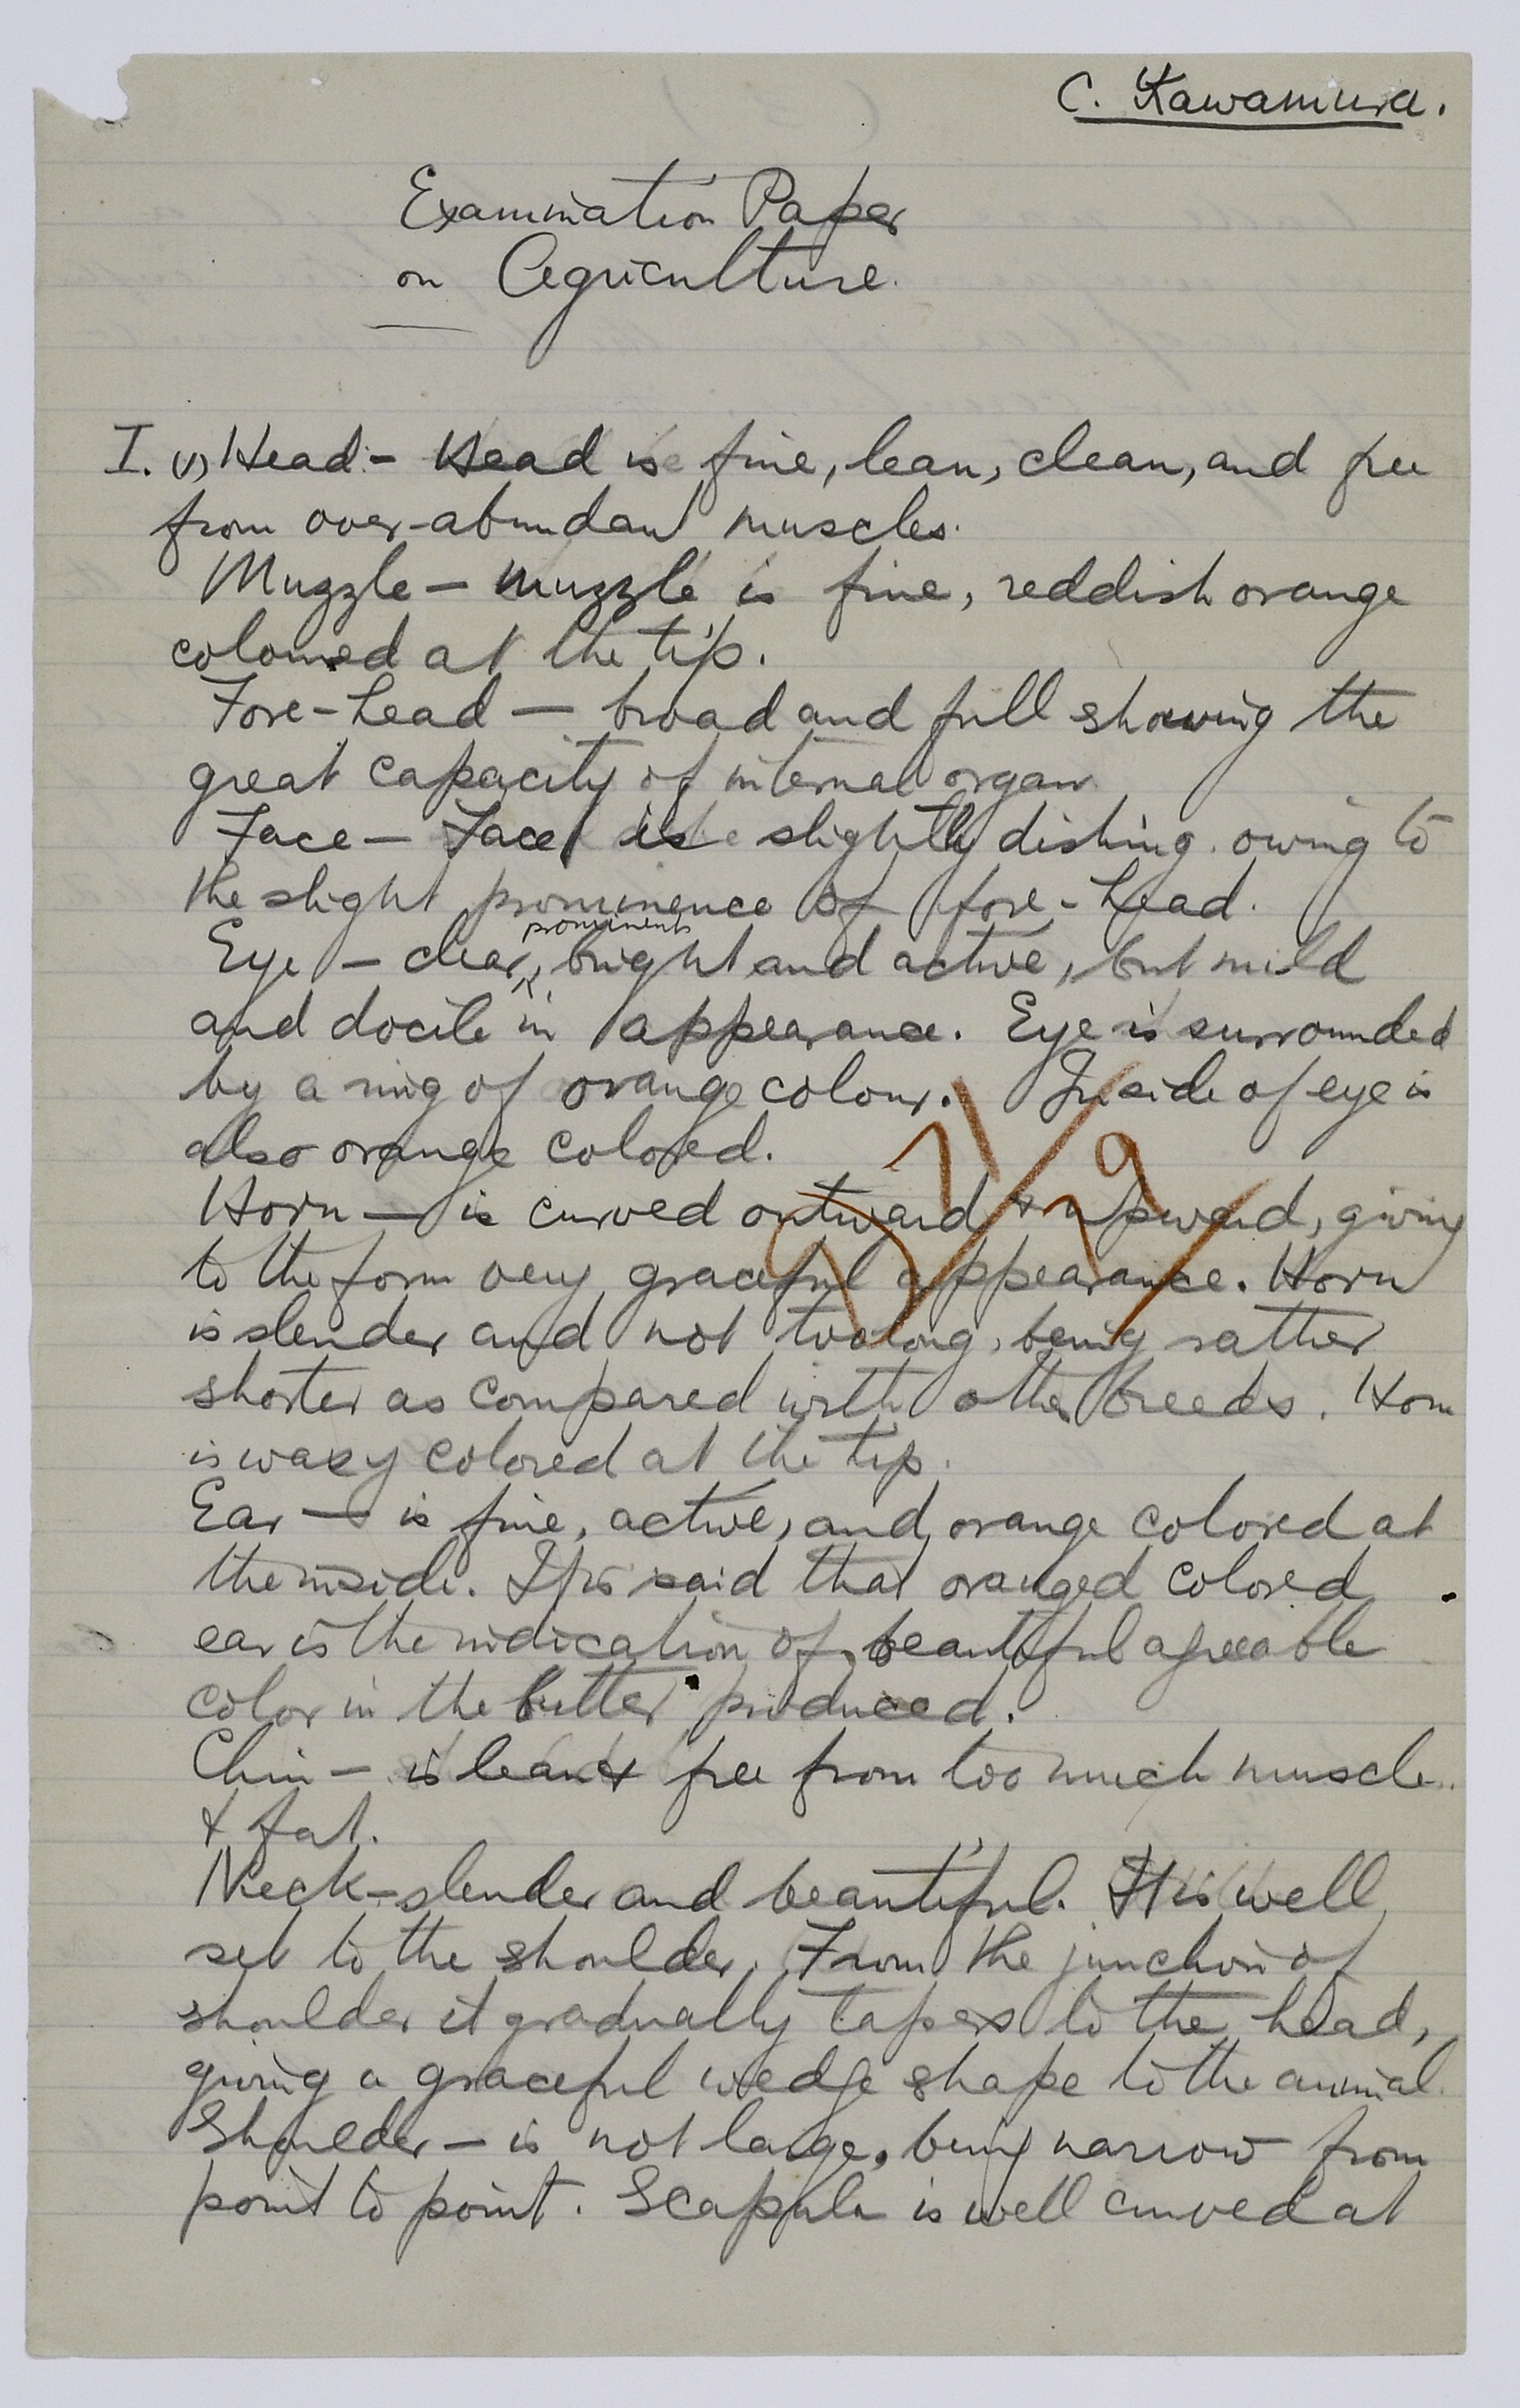 C. Kawamura.
Examination Paper
on Agriculture.
I. (1) Head - Head is fine, lean, clean, and free
from over-abundant muscles.
Muzzle - muzzle is fine, reddish orange
coloured at the tip.
Fore-head - broad and full showing the
great capacity of internal organ.
Face - Face is slightly dishing owing to
the slight prominence of fore-head.
prominent
Eye - clear, bright and active, but mild
and docile in appearance. Eye is surrounded
by a ring of orange colour. Inside of eye is
also orange colored.
Horn - is curved outward & upward, giving
to the form very graceful appearance. Horn
is slender and not too long, being rather
shorter as compared with other breeds. Horn
is waxy colored at the tip.
Ear - is fine, active, and orange colored at
the inside. It is said that oranged colored
ear is the indication of beautiful agreeable
color in the butter produced.
Chin - is lean & free from too much muscle
& fat.
Neck - slender and beautiful. It is well
set to the shoulder. From the junction of
shoulder it gradually tapers to the head,
giving a graceful wedge shape to the animal.
Shoulder - is not large, being narrow from
point to point. Scapula is well curved at